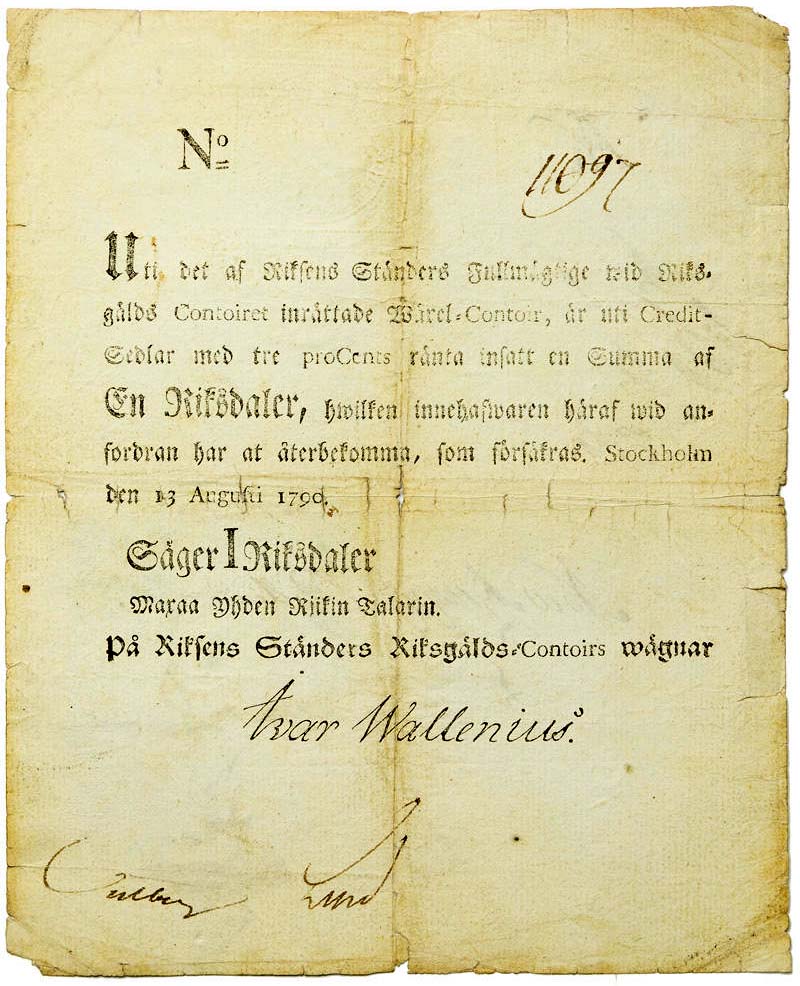 No 11097
Uti det af Riksens Ständers Fullmägtige wid Riks-
gälds Contoiret inrättade Wäxel-Contoir, är uti Credit-
Sedlar med tre proCents ränta insatt en Summa af
En Riksdaler, hwilken innehafwaren häraf wid an-
fordran har at återbekomma, som försäkras. Stockholm
den 13 Augusti 1790.
Säger 1 Riksdaler
Maxaa Yhden Rjikin Talarin.
På Riksens Ständers Riksgälds-Contoirs wägnar
Ivar Wallenius.
Lund